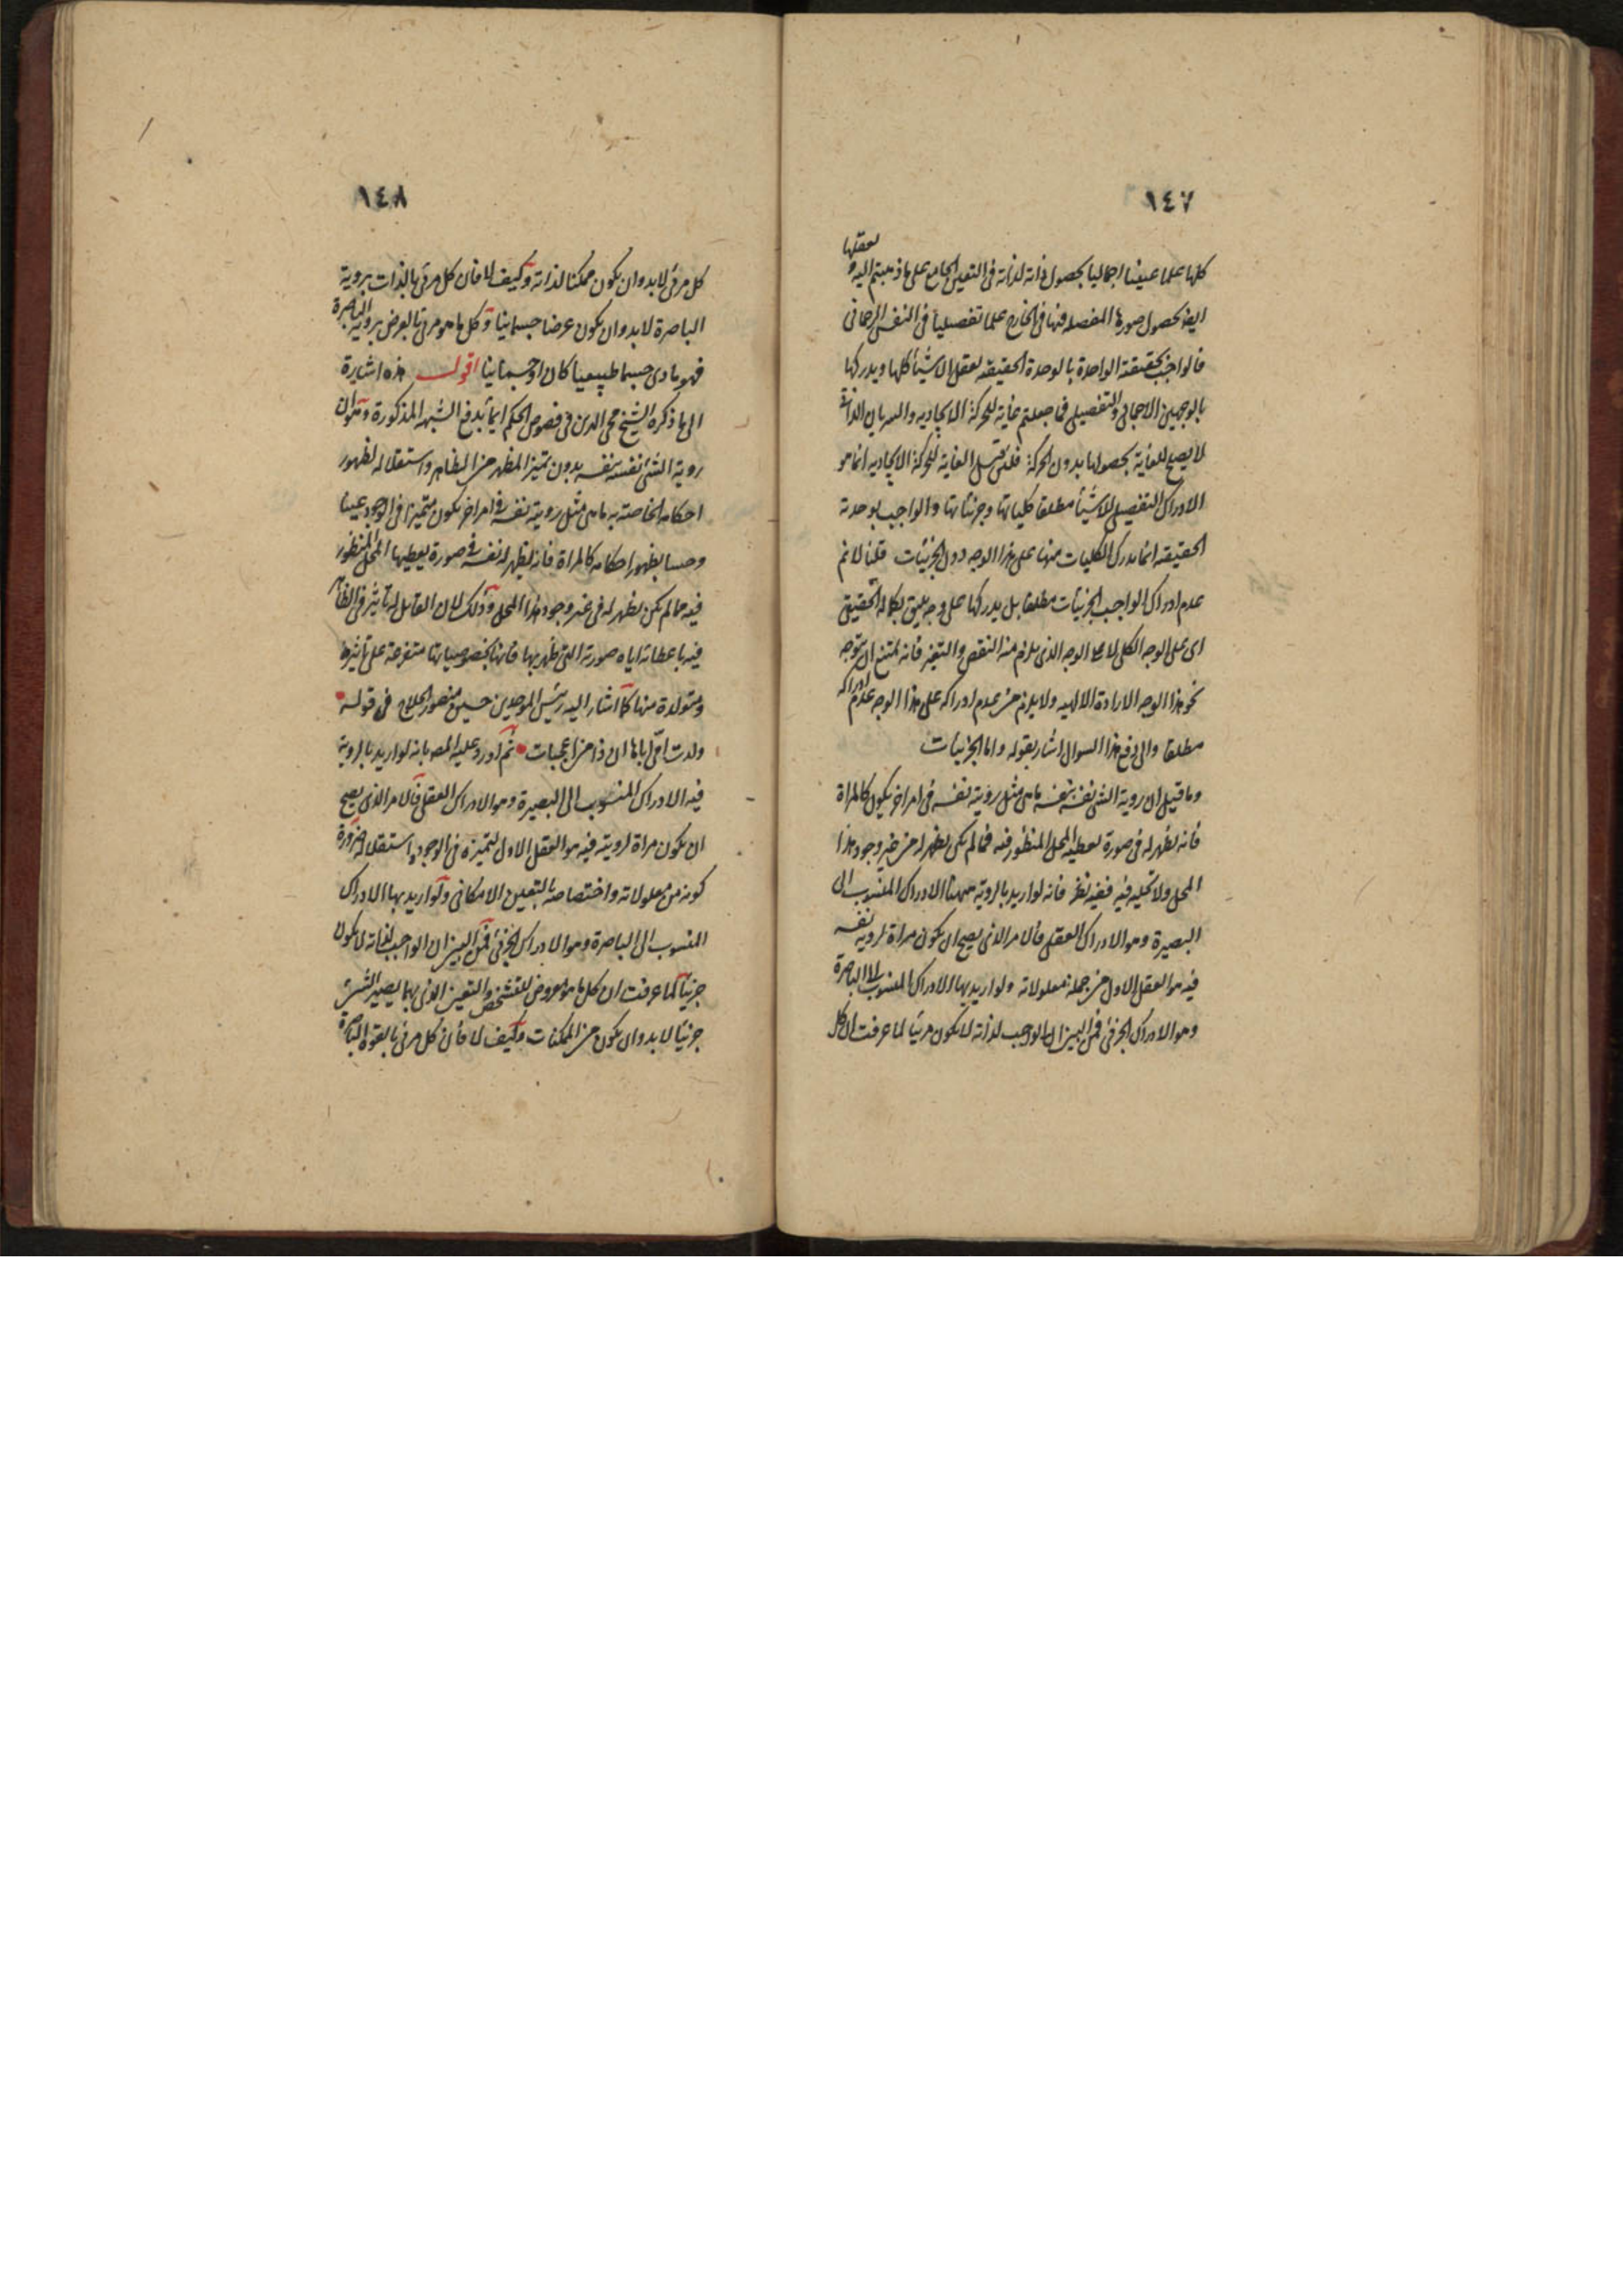 ١٤٧
كلها علما عينيا اجماليا بحصول ذاته لذاته فى التعين الجامع على ما ذهبتم اليه و يعقلها
ايضا بحصول صورها المفصلة فيها فى الخارج علما تفصيليا فى النفس الرحمانى
فالواجب بحقيقته الواحدة بالوحدة الحقيقية يعقل الاشياء كلها ويدركها
بالوجهين الاجمالى والتفصيلى فما جعلتم غاية للحركة الايجادية والسريان الذاتى
لا يصح للغاية لحصولها بدون الحركة فلئن قيل الغاية للحركة الايجادية انما هو
الادراك التفصيلى للاشياء مطلقا كلياتها وجزئياتها والواجب بوحدته
الحقيقية انما يدرك الكليات منها على هذا الوجه دون الجزئيات قلنا لا نم
عدم ادراك الواجب الجزئيات مطلقا بل يدركها على وجه يليق بكماله الحقيقى
اى على الوجه الكلى لا على الوجه الذى يلزم منه النقص والتغير فانه يمتنع ان يتوجه
نحو هذا الوجه الارادة الالهية ولا يلزم من عدم ادراكه على هذا الوجه عدم ادراكه
مطلقا والى دفع هذا السوال اشار بقوله واما الجزئيات
وما قيل ان روية الشئ نفسه بنفسه ما هى مثل رؤية نفسه فى امر اخر يكون كالمراة
فانه يظهر له فى صورة يعطيه المحل المنظور فيه مما لم يكن يظهر له من غير وجود هذا
المحل ولا تجليه فيه ففيه نظر فانه لو اريد بالروية ههنا الادراك المنسوب الى
البصيرة وهو الادراك العقلى فالامر الذى يصح ان يكون مراة لروية نفسه
فيه هو العقل الاول من جملة معلولاته ولو اريد بها الادراك المنسوب الى الباصرة
وهو الادراك الجزئى فمن البين ان الواجب لذاته لا يكون مرئيا لما عرفت ان كل
١٤٨
كل مرئى لا بد وان يكون ممكنا لذاته وكيف لا فان كل مرئى بالذات بروية
الباصرة لا بد وان يكون عرضا جسمانيا وكل ما هو مرئى بالعرض بروية الباصرة
فهو مادى جسما طبيعيا كان او جسمانيا اقول هذه اشارة
الى ما ذكره الشيخ محى الدين فى فصوص الحكم ايماء بدفع الشبهة المذكورة وهو ان
روية الشئ نفسه بنفسه بدون تميز المظهر من الظاهر واستقلاله لظهور
احكامه الخاصة به ما هى مثل رويته نفسه فى امر اخر يكون متميزا فى الوجود عينا
وحسا بظهور احكامه كالمراة فانه يظهر له نفسه فى صورة يعطيها المحل المنظور
فيه مما لم يكن يظهر له فى غير وجود هذا المحل وذلك لان القابل له تاثير فى الظاهر
فيه باعطائه اياه صورته التى ظهر بها فانها بخصوصياتها متفرعة على تاثيره
ومتولدة منها كما اشار اليه رئيس الموحدين حسين منصور الحلاج فى قوله
ولدت امى اباها ان ذا من اعجبات ثم اورد عليه المص بانه لو اريد بالروية
فيه الادراك المنسوب الى البصيرة وهو الادراك العقلى فالامر الذى يصح
ان يكون مراة لرويته فيه هو العقل الاول لتميزه فى الوجود واستقلاله ضرورة
كونه من معلولاته واختصاصه بالتعين الامكانى ولو اريد بها الادراك
المنسوب الى الباصرة وهو الادراك الجزئى فمن البين ان الواجب لذاته لا يكون
جزئيا لما عرفت ان كل ما هو معروض للتشخص والتعين الذى بهما يصير الشئ
جزئيا لا بد وان يكون من الممكنات وكيف لا فان كل مرئى بالقوة الباصرة